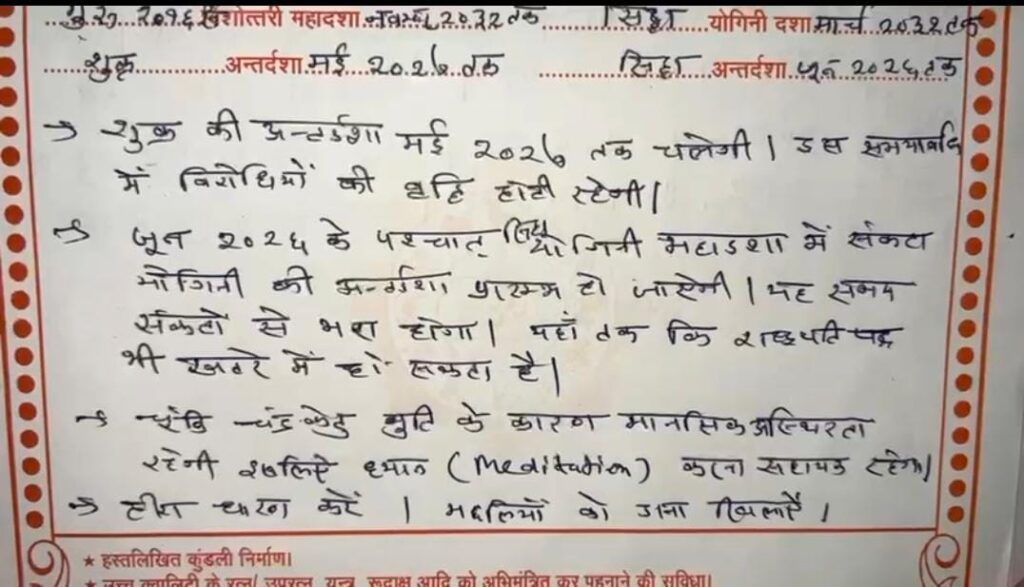 गुरु २०१६ विंशोत्तरी महादशा नवम्बर २०३२ तक सिद्धा योगिनी दशा मार्च २०३२ तक
शुक्र अन्तर्दशा मई २०२७ तक सिद्धा अन्तर्दशा जून २०२६ तक
→ शुक्र की अन्तर्दशा मई २०२७ तक चलेगी। इस समयावधि
में विरोधियों की वृद्धि होती रहेगी।
→ जून २०२६ के पश्चात् सिद्धा योगिनी महादशा में संकटा
योगिनी की अन्तर्दशा प्रारम्भ हो जाऐगी। यह समय
संकटों से भरा होगा। यहाँ तक कि राष्ट्रपति पद
भी खतरे में हो सकता है।
→ चूंकि चंद्र केतु युति के कारण मानसिक अस्थिरता
रहेगी इसलिऐ ध्यान (Meditation) करना सहायक रहेगा।
→ हीरा धारण करें। मछलियों को दाना खिलाऐं।
★ हस्तलिखित कुंडली निर्माण।
★ उच्च क्वालिटी के रत्न/ उपरत्न, यन्त्र, रूद्राक्ष आदि को अभिमंत्रित कर पहनाने की सुविधा।